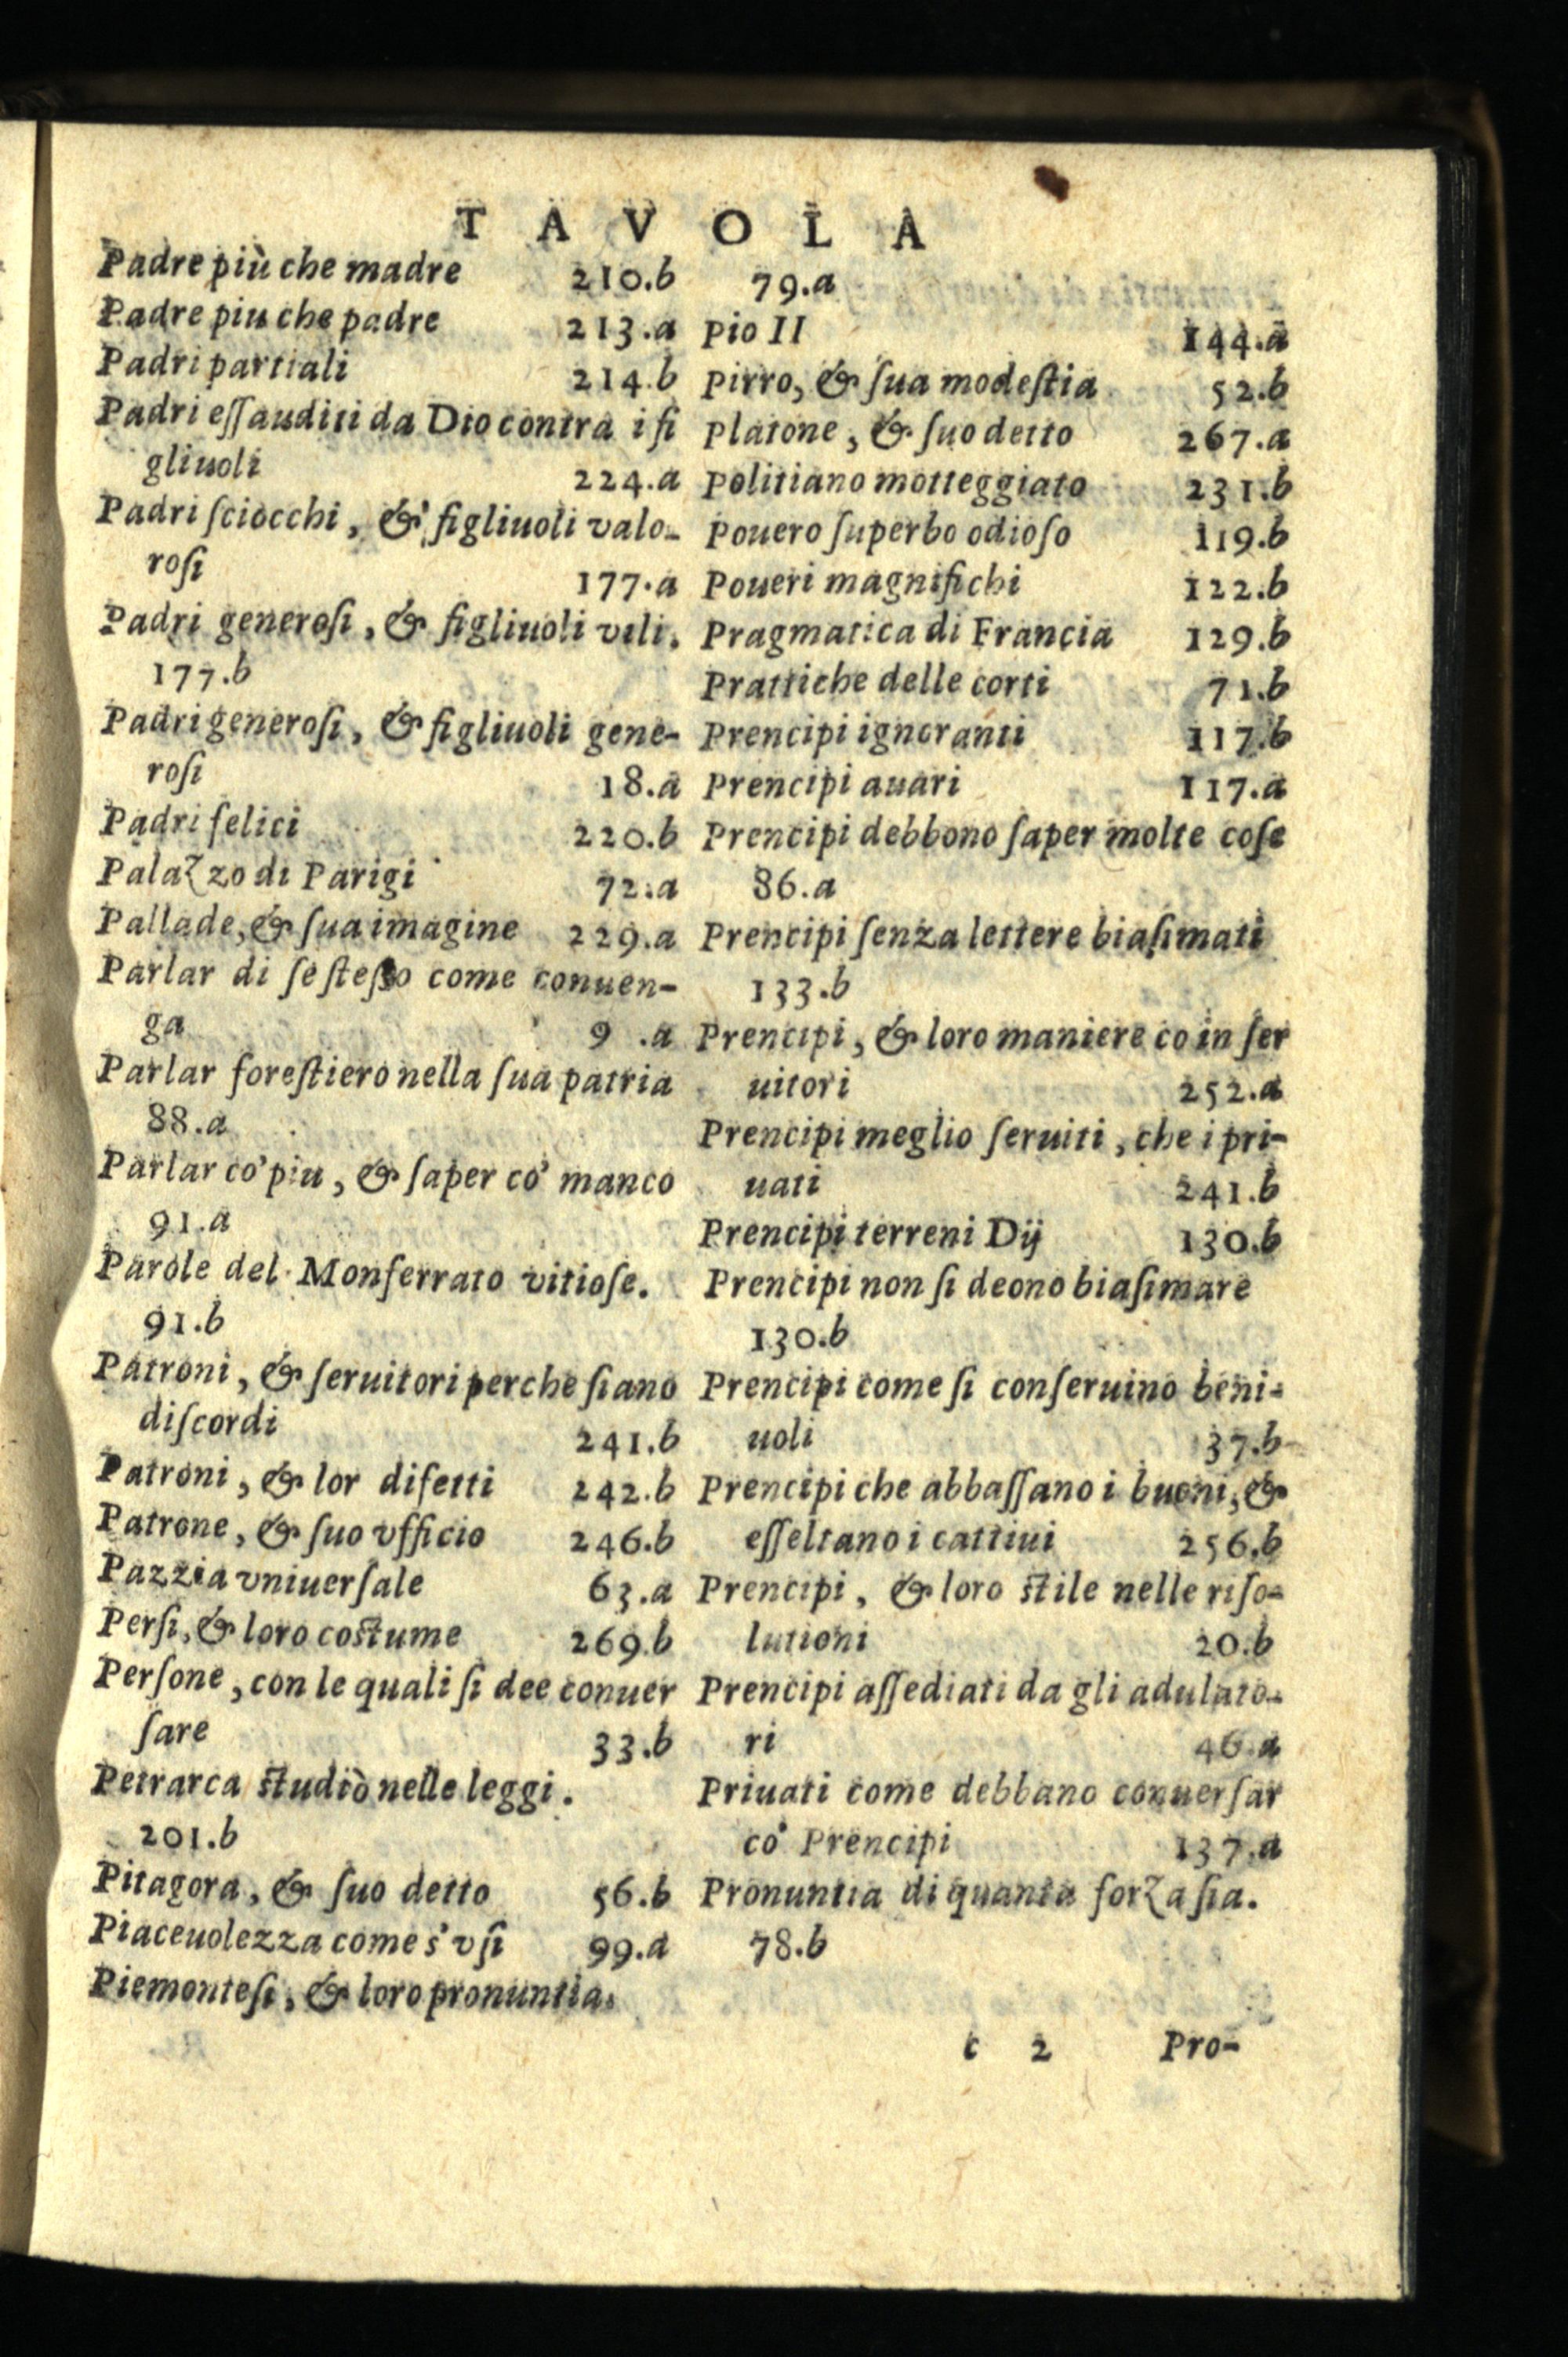 TAVOLA
Padre più che madre 210.b
Padre piu che padre 213.a
Padri partiali 214.b
Padri eſſauditi da Dio contra i fi
gliuoli 224.a
Padri ſciocchi, & figliuoli valo-
roſi 177.a
Padri generoſi, & figliuoli vili.
177.b
Padri generoſi, & figliuoli gene-
roſi 18.a
Padri felici 220.b
Palazzo di Parigi 72.a
Pallade, & ſua imagine 229.a
Parlar di ſe ſteſſo come conuen-
ga 9 .a
Parlar foreſtiero nella ſua patria
88.a
Parlar co' piu, & ſaper co' manco
91.a
Parole del Monferrato vitioſe.
91.b
Patroni, & ſeruitori perche ſiano
diſcordi 241.b
Patroni, & lor difetti 242.b
Patrone, & ſuo vfficio 246.b
Pazzia vniuerſale 63.a
Perſi, & loro coſtume 269.b
Perſone, con le quali ſi dee conuer
ſare 33.b
Petrarca ſtudiò nelle leggi.
201.b
Pitagora, & ſuo detto 56.b
Piaceuolezza come s'vſi 99.a
Piemonteſi, & loro pronuntia.
79.a
Pio II 144.a
Pirro, & ſua modeſtia 52.b
Platone, & ſuo detto 267.a
Politiano motteggiato 231.b
Pouero ſuperbo odioſo 119.b
Poueri magnifichi 122.b
Pragmatica di Francia 129.b
Prattiche delle corti 71.b
Prencipi ignoranti 117.b
Prencipi auari 117.a
Prencipi debbono ſaper molte coſe
86.a
Prencipi ſenza lettere biaſimati
133.b
Prencipi, & loro maniere co in ſer
uitori 252.a
Prencipi meglio ſeruiti, che i pri-
uati 241.b
Prencipi terreni Dij 130.b
Prencipi non ſi deono biaſimare
130.b
Prencipi come ſi conſeruino beni-
uoli 37.b
Prencipi che abbaſſano i buoni, &
eſſeltano i cattiui 256.b
Prencipi, & loro ſtile nelle riſo-
lutioni 20.b
Prencipi aſſediati da gli adulato-
ri 46.a
Priuati come debbano conuerſar
co' Prencipi 137.a
Pronuntia di quanta forza ſia.
78.b
c 2 Pro-